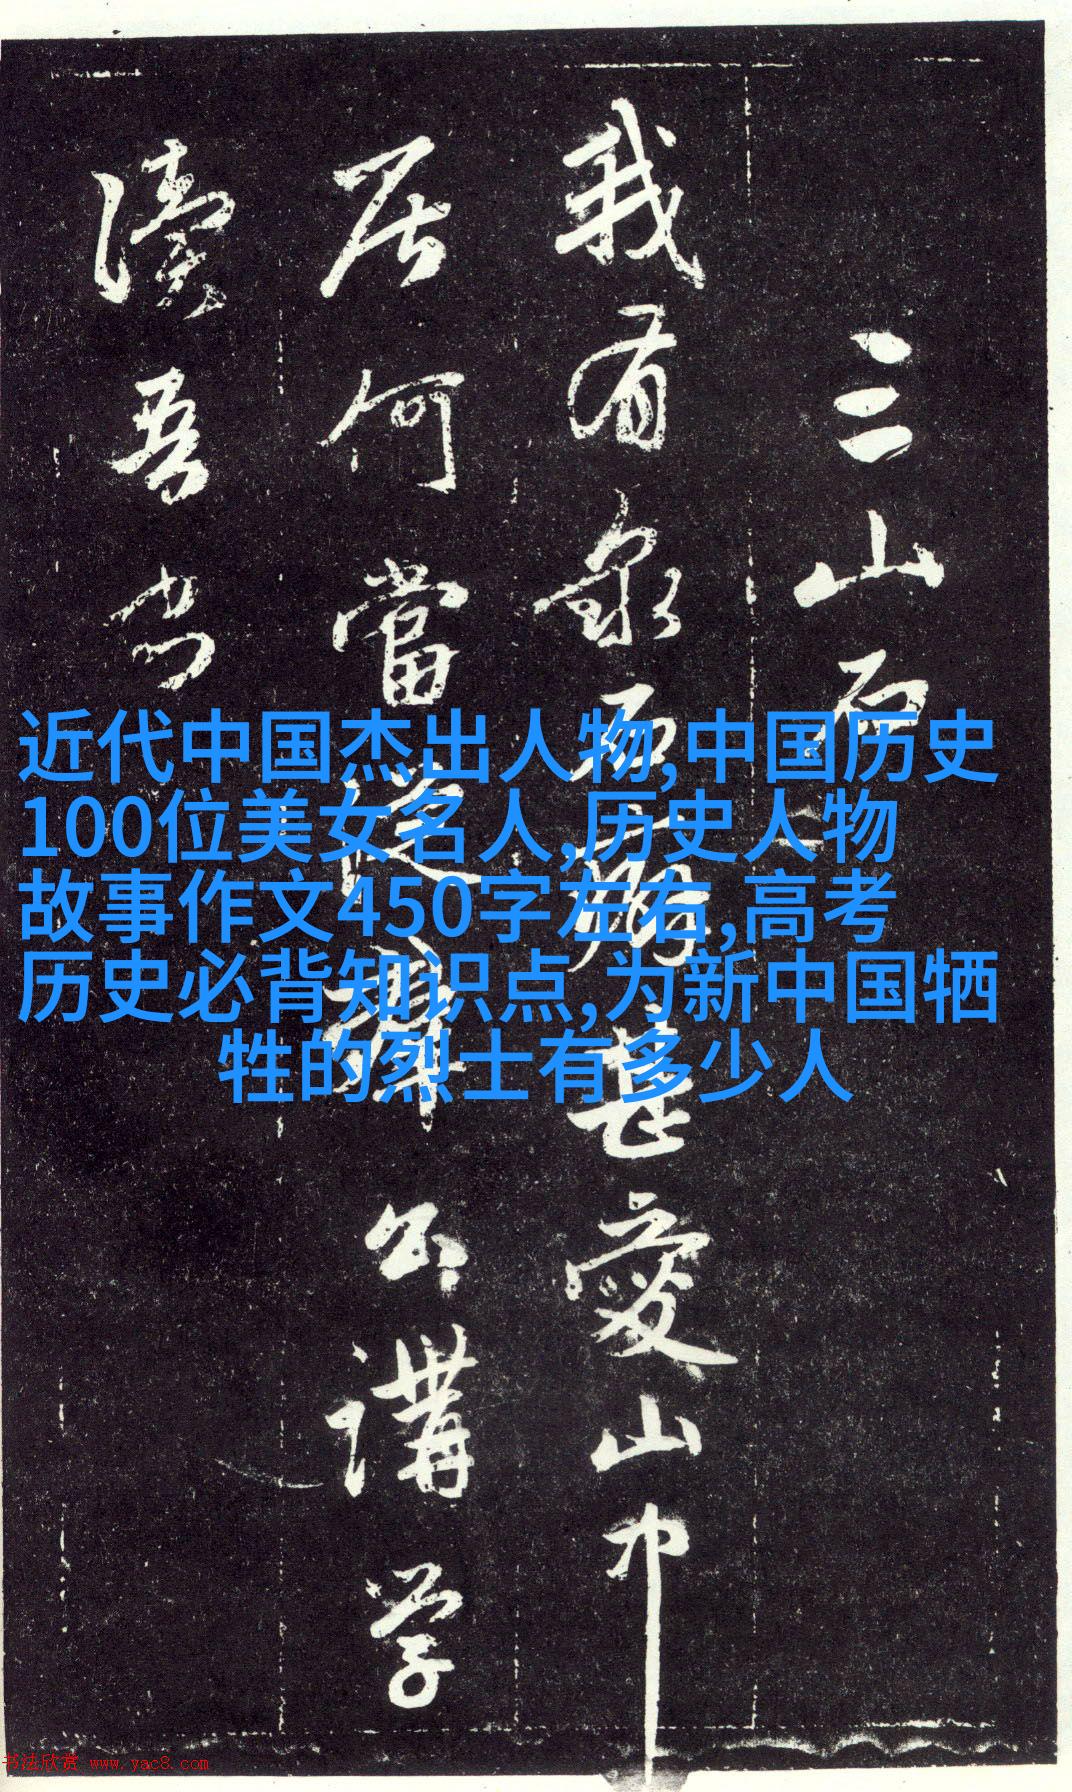 三山石
我有泉石癖甚愛山中
居何當從羣公講學
讀吾書
近代中国杰出人物,中国历史
100位美女名人,历史人物
故事作文450字左右,高考
历史必背知识点,为新中国牺
牲的烈士有多少人
书法欣赏 www.yac8.com